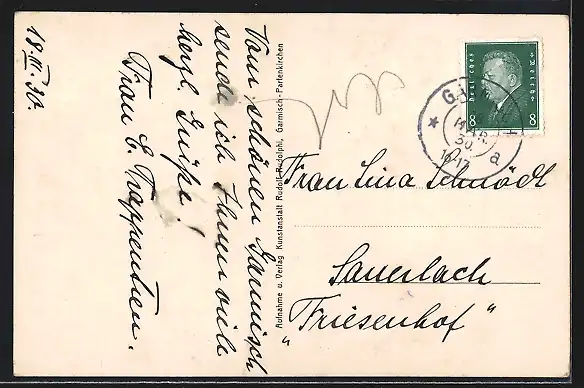 18.III.30.
Vom schönen Garmisch
sende ich Ihnen viele
herzl. Grüße!
Frau E. Trappentreu.
Aufnahme u. Verlag Kunstanstalt Rudolf Rudolphi, Garmisch-Partenkirchen
Deutsches Reich
8 8
16-17
a
Frau Lina Schmödt
Sauerlach
"Friesenhof"